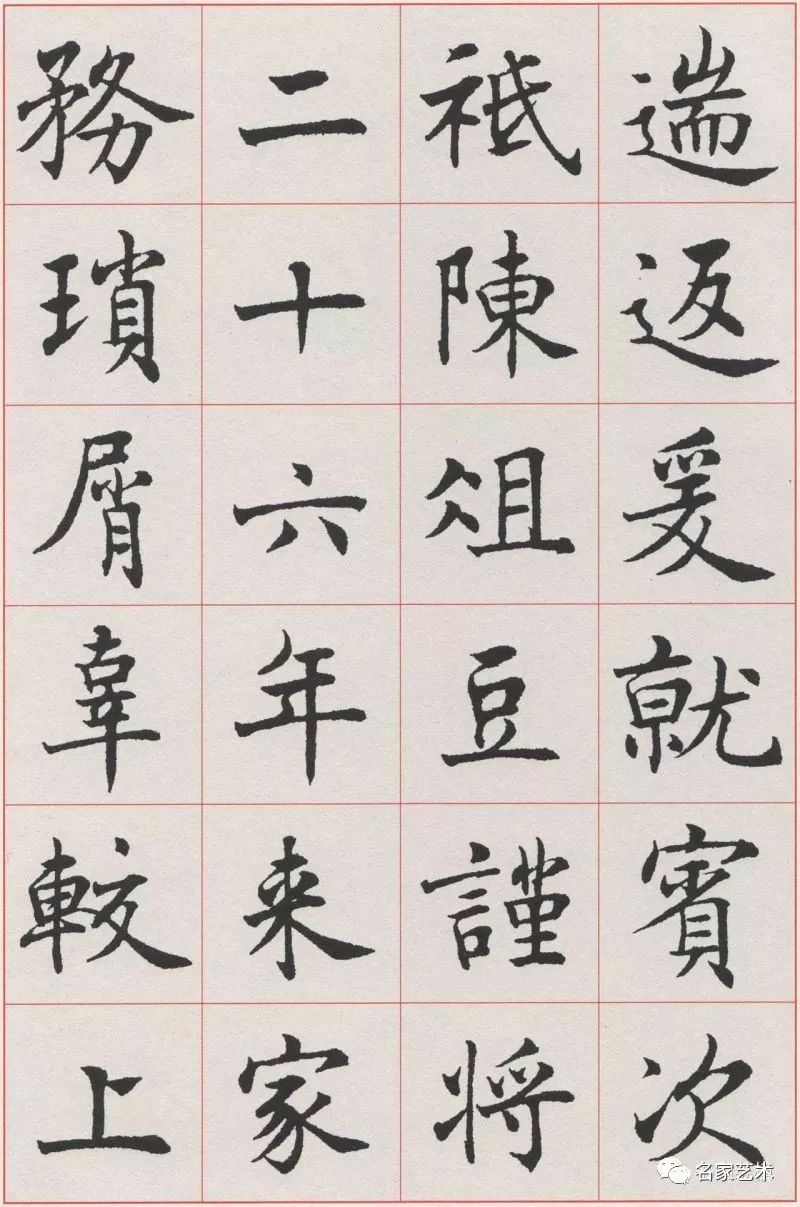 遄返爰就賓次
祗陳俎豆謹将
二十六年来家
務瑣屑辜較上
名家艺术